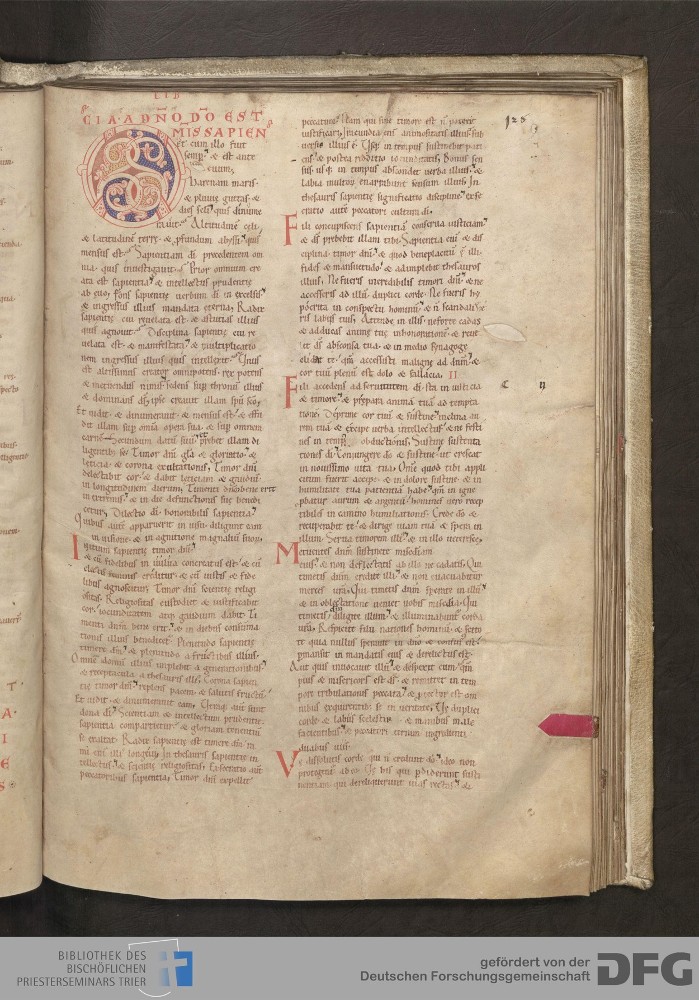 LIB
EI A·A DÑO DO EST
MIS SAPIEN
Et cum illo fuit
semp & est ante
euum.
harenam maris.
& pluuie guttas. &
dies seculi quis dinume
rauit. Altitudinē celi.
& latitudinē terre. & profundum abyssi quis
mensus est. Sapientiam di precedentem om
nia. quis inuestigauit. Prior omnium cre
ata est sapientia. & intellectus prudentie
ab euo. Fons sapientie uerbum di in excelsis.
& ingressus illius mandata eterna. Radix
sapientie cui reuelata est. & astutias illius
quis agnouit. Disciplina sapientie cui re
uelata est. & manifestata. & multiplicatio
nem ingressus illius quis intellexit. Vnus
est altissimus creator omnipotens. rex potens
& metuendus nimis. sedens sup thronū illius
& dominans ds. ipse creauit illam spū scō.
Et uidit. & dinumerauit. & mensus est. & effu
dit illam sup omia opera sua. & sup omnem
carnē. Secundum datū suū prebet illam di
ligentibus se. Timor dni gla. & gloriatio. &
leticia. & corona exultationis. Timor dni
delectabit cor. & dabit leticiam & gaudiū.
in longitudinem dierum. Timenti dnm bene erit
in extremis. & in die defunctionis sue benedi
cetur. Dilectio di honorabilis sapientia.
Quibus autē apparuerit in uisu. diligunt eam
in uisione. & in agnitione magnaliū suoru.
Initium sapientie timor dni.
& cū fidelibus in uulua concreatus est. & cū
electis feminis creditur. & cū iustis & fide
libus agnoscitur. Timor dni scientie religi
ositas. Religiositas custodiet & iustificabit
cor. iocunditatem atq gaudium dabit. Ti
menti dnm bene erit. & in diebus consūma
tionis illius benedicet. Plenitudo sapientie
timere dm. & plenitudo a fructibus illius.
Omne domū illius implebit a generationibus.
& receptacula a thesauris illius. Corona sapien
tie timor dni. replens pacem. & salutis fructū.
Et uidit. & dinumerauit eam.
dona di. Scientiam. & intellectum prudentie.
sapientia compartietur. & gloriam tenentiū
se exaltat. Radix sapientie est timere dm. ra
mi eni illi longeui. In thesauris sapientie in
tellectus. & scientie religiositas. Execratio aut
peccatoribus sapientia. Timor dni expellit
peccatum. Nam qui sine timore est n poterit
iustificari. Iracundia eni animositatis illius sub
uersio illius ē. Vsq in tempus sustinebit pati
ens. & postea redditio iocunditatis. Bonus sen
sus usq in tempus abscondet uerba illius. &
labia multorū enarrabunt sensum illius. In
thesauris sapientie significatio discipline. exse
cratio autē peccatori cultura di.
Fili concupiscens sapientiā conserua iusticiam.
& ds prebebit illam tibi. Sapientia eni & dis
ciplina timor dni. & quod beneplacitū ē illi
fides. & mansuetudo. & adimplebit thesauros
illius. Ne fueris incredibilis timori dni. & ne
accesseris ad illū duplici corde. Ne fueris hy
pocrita in conspectu hominū. & n scandalize
ris labiis tuis. Attende in illis. ne forte cadas
& adducas anime tue inhonorationē. & reue
let ds absconsa tua. & in medio synagoge
elidat te. qm accessisti maligne ad dnm. &
cor tuū plenū est dolo & fallacia. II
Fili accedens ad seruitutem di. sta in iusticia
& timore. & prepara animā tuā ad tempta
tionē. Deprime cor tuū & sustine. inclina au
rem tuā & excipe uerba intellectus. & ne festi
nes in tempus obductionis. Sustine sustenta
tiones di. Coniungere do & sustine. ut crescat
in nouissimo uita tua. Omē quod tibi appli
citum fuerit accipe. & in dolore sustine. & in
humilitate tua patientiā habe. qm in igne
probatur aurum & argentū. homines uero recep
tibiles in camino humiliationis. Crede do &
recuperabit te. & dirige uiam tuā & spera in
illum. Serua timorem illius & in illo ueterisce.
Metuentes dnm sustinete misdiam
eius. & non deflectatis ab illo ne cadatis. Qui
timetis dnm credite illi. & non euacuabitur
merces urā. Qui timetis dnm sperate in illū.
& in oblectatione ueniet uobis misdia. Qui
timetis dnm diligite illum. & illuminabunt corda
urā. Respicite filii nationes hominū. & scito
te quia nullus sperauit in dno & confusus est.
pmansit in mandatis eius & derelictus est.
Aut quis inuocauit illū & despexit eum. qm
pius & misericors est ds. & remittet in tem
pore tribulationis peccata. & ptector est om
nibus exquirentibus se in ueritate. Ve duplici
corde. & labiis scelestis. & manibus male
facientibus. & peccatori terram ingredienti
duabus uiis.
Ve dissolutis corde qui n credunt do. & ideo non
protegent ab eo. Ve his qui pdiderunt susti
nentiam. qui dereliquerunt uias rectas. &
BIBLIOTHEK DES
BISCHÖFLICHEN
PRIESTERSEMINARS TRIER
gefördert von der
Deutschen Forschungsgemeinschaft
DFG